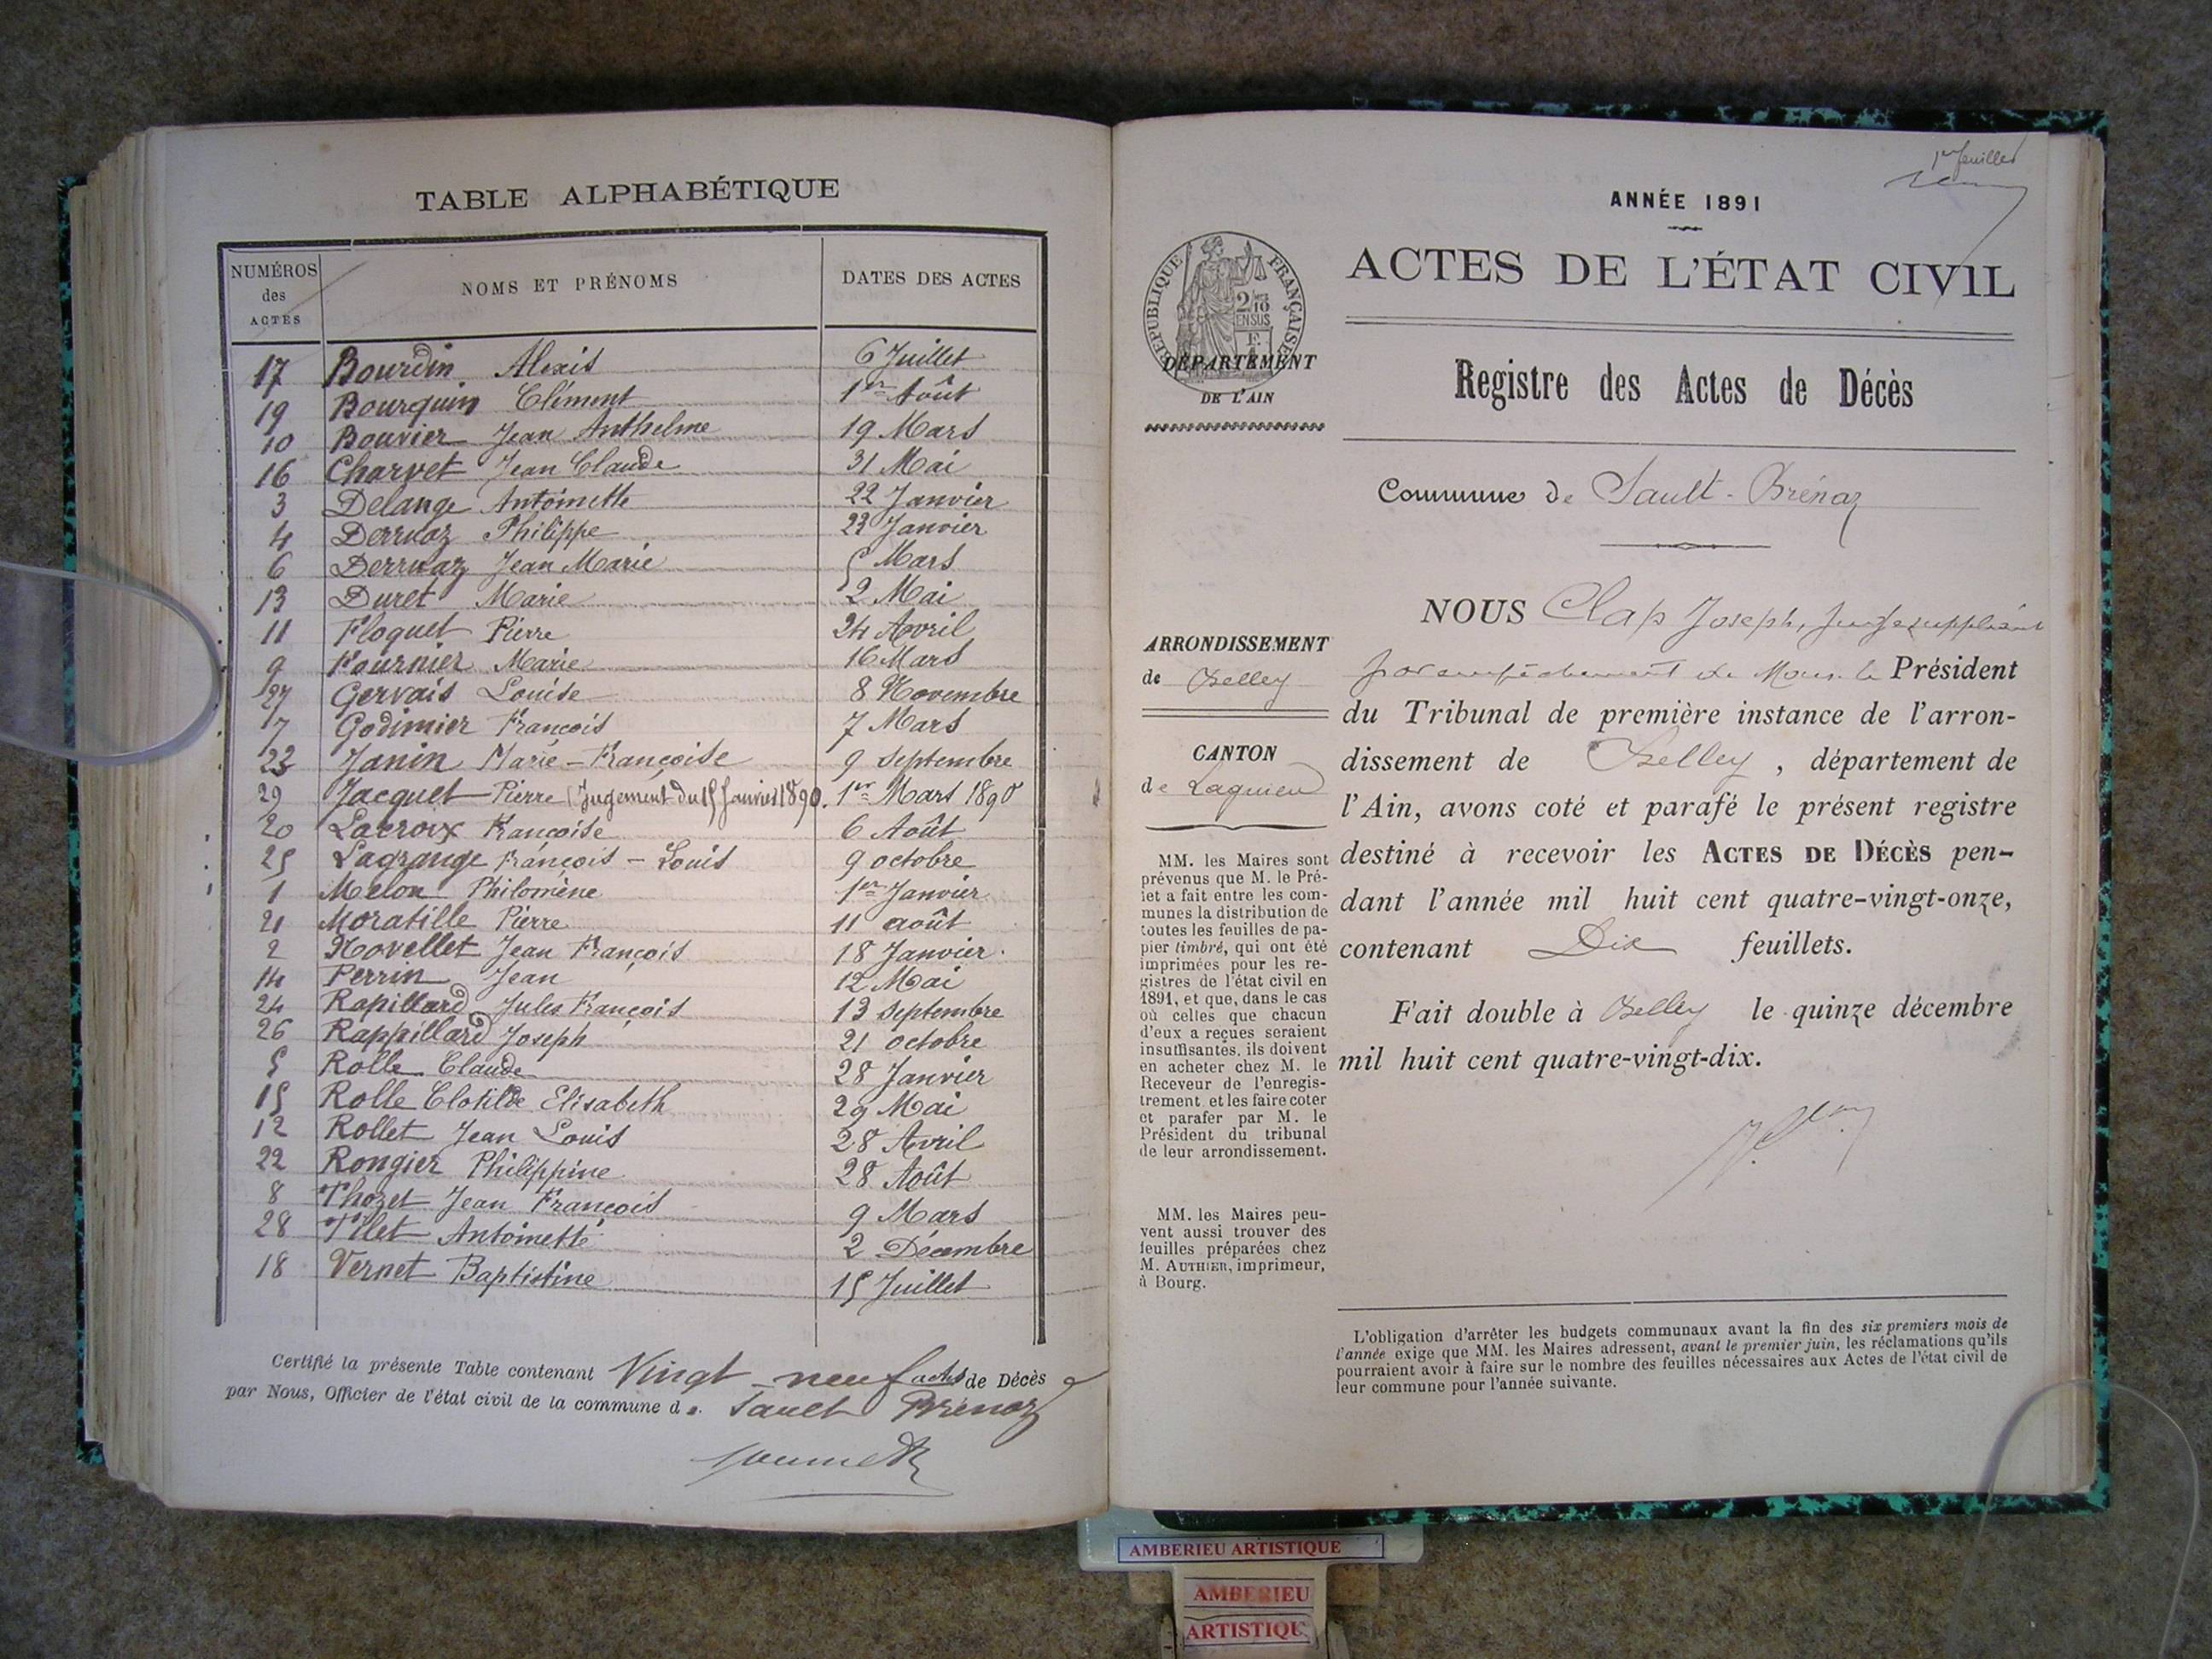 TABLE ALPHABÉTIQUE
NUMÉROS des ACTES NOMS ET PRÉNOMS DATES DES ACTES
17 Bourdin Alexis 6 Juillet
19 Bourquin Clément 1er Août
10 Bouvier Jean Anthelme 19 Mars
16 Charvet Jean Claude 31 Mai
3 Delange Antoinette 22 Janvier
4 Derruaz Philippe 23 Janvier
6 Derruaz Jean Marie 5 Mars
13 Duret Marie 2 Mai
11 Floquet Pierre 24 Avril
9 Fournier Marie 16 Mars
27 Gervais Louise 8 Novembre
7 Godimier François 7 Mars
23 Janin Marie-Françoise 9 Septembre
29 Jacquet Pierre (Jugement du 15 Janvier 1890. 1er Mars 1890
20 Lacroix Françoise 6 Août
25 Lagrange François-Louis 9 octobre
1 Melon Philomène 1er Janvier
21 Moratille Pierre 11 août
2 Novellet Jean François 18 Janvier
14 Perrin Jean 12 Mai
24 Rapillard Jules François 13 Septembre
26 Rappillard Joseph 21 octobre
5 Rolle Claude 28 Janvier
15 Rolle Clotilde Elisabeth 29 Mai
12 Rollet Jean Louis 28 Avril
22 Rongier Philippine 28 Août
8 Thozet Jean François 9 Mars
28 Antoinette 2 Décembre
18 Vernet Baptistine 15 Juillet
Certifié la présente Table contenant Vingt-neuf actes de Décès
par Nous, Officier de l'état civil de la commune de Sault Brénaz
1er feuillet
ANNÉE 1891
ACTES DE L'ÉTAT CIVIL
RÉPUBLIQUE FRANÇAISE
DÉPARTEMENT
DE L'AIN
Registre des Actes de Décès
Commune de Sault-Brénaz
ARRONDISSEMENT
de Belley
CANTON
de Lagnieu
MM. les Maires sont
prévenus que M. le Pré-
fet a fait entre les com-
munes la distribution de
toutes les feuilles de pa-
pier timbré, qui ont été
imprimées pour les re-
gistres de l'état civil en
1891, et que, dans le cas
où celles que chacun
d'eux a reçues seraient
insuffisantes, ils doivent
en acheter chez M. le
Receveur de l'enregis-
trement et les faire coter
et parafer par M. le
Président du tribunal
de leur arrondissement.
MM. les Maires peu-
vent aussi trouver des
feuilles préparées chez
M. AUTHIER, imprimeur,
à Bourg.
NOUS Clap Joseph, Juge suppléant
par empêchement de Mons. le Président
du Tribunal de première instance de l'arron-
dissement de Belley, département de
l'Ain, avons coté et parafé le présent registre
destiné à recevoir les ACTES DE DÉCÈS pen-
dant l'année mil huit cent quatre-vingt-onze,
contenant Dix feuillets.
Fait double à Belley le quinze décembre
mil huit cent quatre-vingt-dix.
L'obligation d'arrêter les budgets communaux avant la fin des six premiers mois de
l'année exige que MM. les Maires adressent, avant le premier juin, les réclamations qu'ils
pourraient avoir à faire sur le nombre des feuilles nécessaires aux Actes de l'état civil de
leur commune pour l'année suivante.
AMBERIEU ARTISTIQUE
AMBERIEU
ARTISTIQU